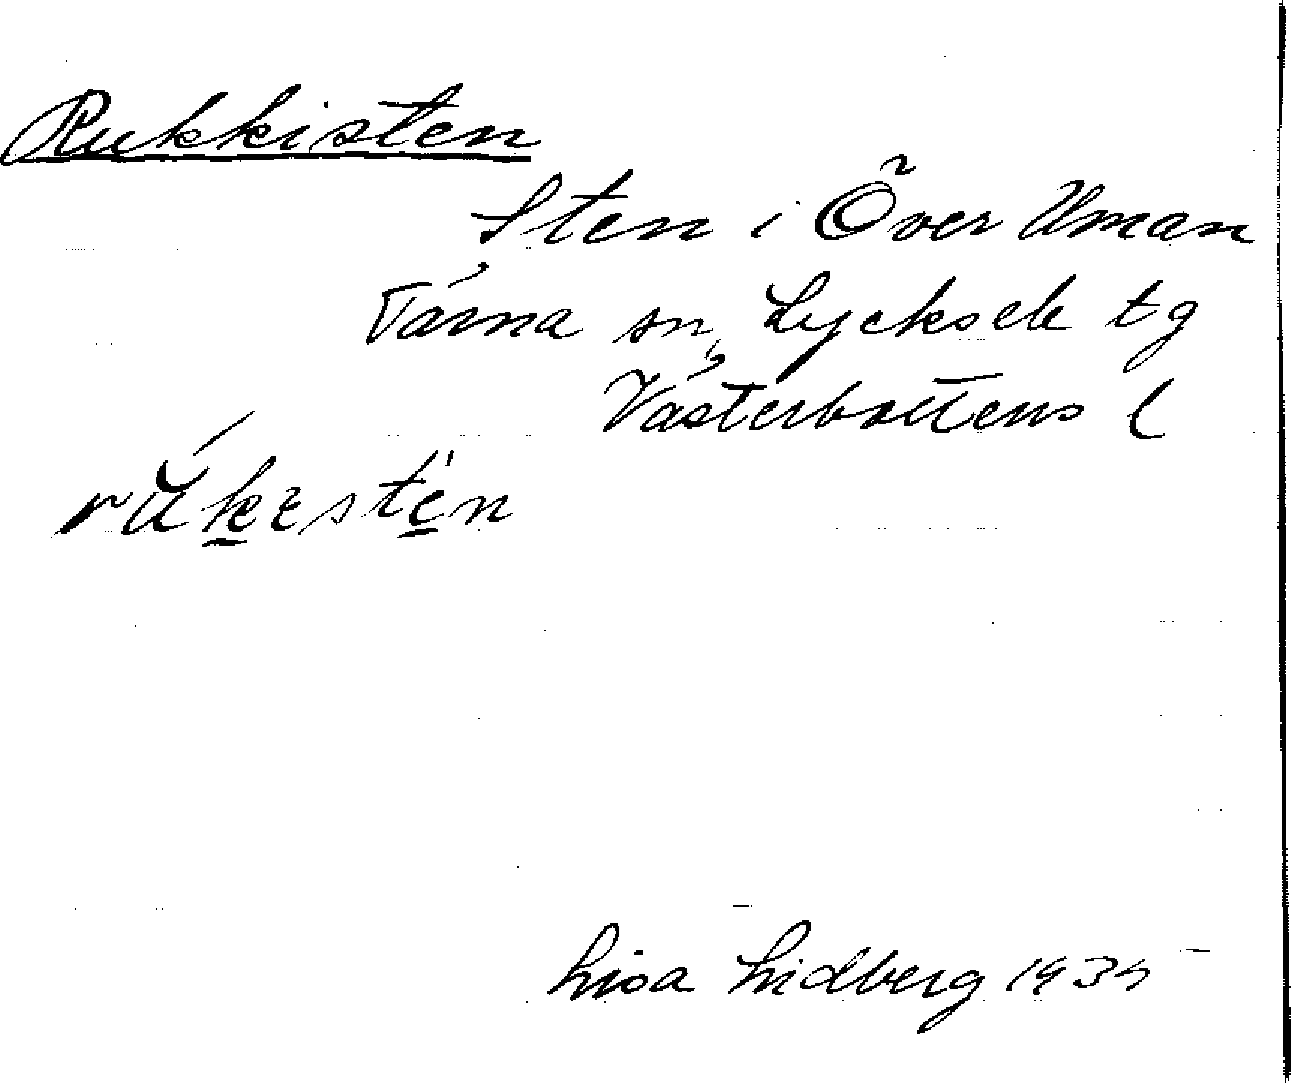 Rukkisten
Sten i Över Uman
Tärna sn, Lycksele tg
Västerbottens l
Lisa Lidberg 1935